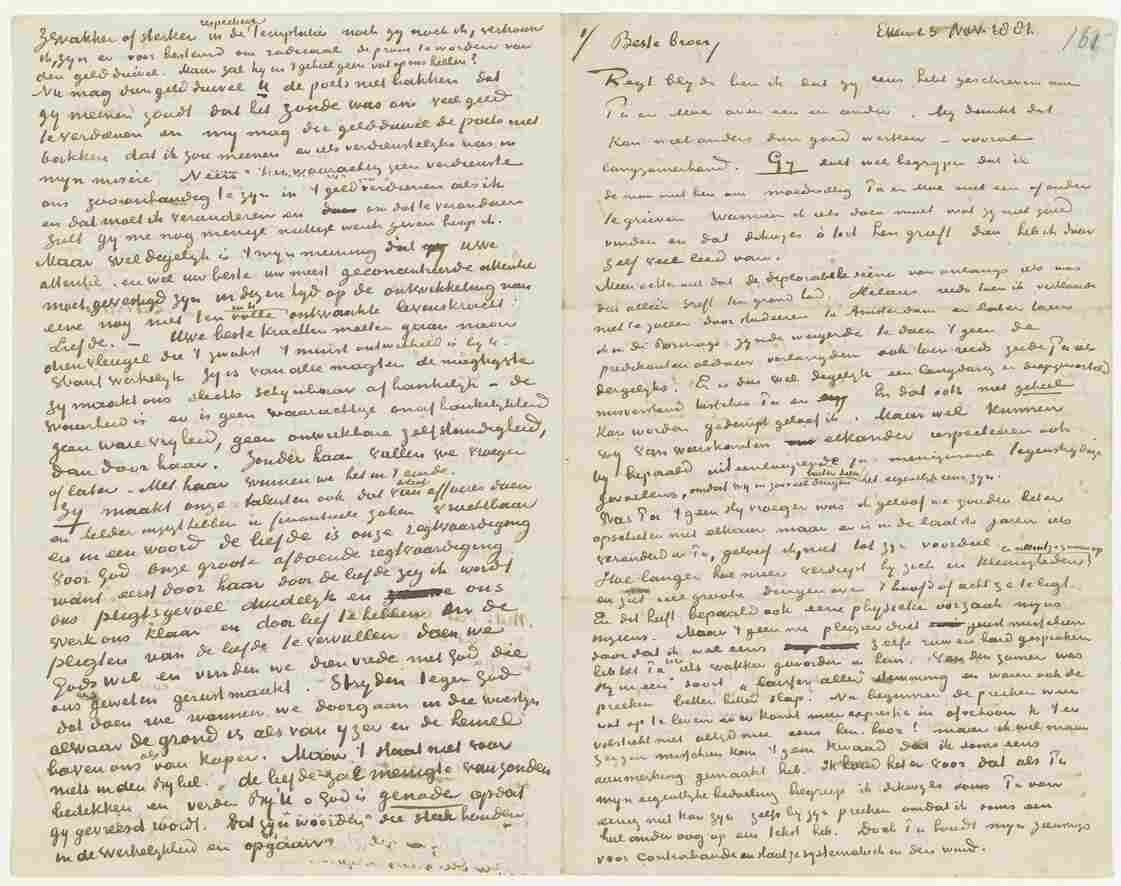 respectieve
Zwakker of sterker in de temptatie noch gy noch ik, vertrouw
ik, zyn er voor bestemd om radicaal de prooi te worden van
den geldduivel. Maar zal hy in 't geheel geen vat op ons hebben?
Nu mag dien geldduivel U de poets niet bakken dat
gy meenen zoudt dat het zonde was om veel geld
te verdienen en my mag die geldduivel de poets niet
bakken dat ik zou meenen er iets verdienstelyks was in
mijn misère. Neen waarachtig geen verdienste
ons zoo onhandig te zyn in 't geld verdienen als ik
en dat moet ik veranderen en om dat te veranderen
zult gy me nog menige nuttige wenk geven hoop ik.
Maar wel degelyk is 't myn meening dat uwe
attentie en wel uw beste uw meest geconcentreerde attentie
moet gevestigd zyn in dezen tyd op de ontwikkeling van
eene nog niet ten volle ontwaakte levenskracht:
Liefde. – Uwe beste krachten moeten gaan naar
dien vleugel die 't zwakst 't minst ontwikkeld is by U.
Want werkelyk zy is van alle magten de magtigste
zy maakt ons slechts schynbaar afhankelyk – de
waarheid is er is geen waarachtige onafhankelykheid
geen ware vryheid, geen onwrikbare zelfstandigheid,
dan door haar. Zonder haar vallen we vroeger
of later – Met haar winnen we het in 't einde.
Zy maakt onze talenten ook dat van affaires doen
en helder inzigt hebben in financieele zaken vruchtbaar
en in een woord de liefde is onze regtvaardiging
voor God onze groote afdoende regtvaardiging.
want eerst door haar door de liefde zeg ik wordt
ons pligtsgevoel duidelyk en ons
werk ons klaar en door lief te hebben en de
pligten van de liefde te vervullen doen we
Gods wil en vinden we dien vrede met God die
ons geweten gerust maakt. Stryden tegen God
dat doen we wanneer we doorgaan in die woestyn
alwaar de grond is als van yzer en de hemel
boven ons als van koper. Maar 't staat niet voor
niets in den bybel. de liefde zal menigte van zonden
bedekken en verder By U o God is genade opdat
gy gevreesd wordt. Dat zyn woorden die steek houden
in de werkelykheid en opgaan
1/ Beste broer,
Etten 3 Nov. 1881.
Regt blyde ben ik dat gy eens hebt geschreven aan
Pa en Moe over een en ander. My dunkt dat
kan niet anders dan goed werken – vooral
langzamerhand. Gy zult wel begrypen dat ik
de man niet ben om moedwillig Pa en Moe met een of ander
te grieven. Wanneer ik iets doen moet wat zy niet goed
vinden en dat dikwyls à tort hen grieft dan heb ik daar
zelf veel leed van.
Meen echter niet dat de deplorabele scène van onlangs iets was
dat alleen drift ten grond had. Helaas reeds toen ik verklaarde
niet te zullen doorstuderen te Amsterdam en later toen
ik in de Borinage zynde weigerde te doen 't geen de
predikanten aldaar verlangden ook toen reeds zeide Pa iets
dergelyks. Er is dus wel degelyk een langdurig en diepgeworteld
misverstand tusschen Pa en my En dat ook niet geheel
kan worden gedempt geloof ik. Maar wel kunnen
wy van weerskanten elkander respecteren ook
by bepaald uiteenloopende ja menigmaal tegenstrydige
gevoelens, omdat wy in zooveel dingen het eigentlyk eens zyn.
Was Pa 't geen hy vroeger was ik geloof we zouden beter
opschieten met elkaar maar er is in de laatste jaren iets
veranderd in Pa, geloof ik niet tot zyn voordeel
Hoe langer hoe meer verdiept hy zich in kleinigheden
en ziet de groote dingen over 't hoofd of acht ze te ligt.
En dit heeft bepaald ook eene physieke oorzaak
Maar 't geen me pleizier doet is misschien
daardoor dat ik wel eens zelfs ruw en hard gesproken
heb tot Pa iets wakker geworden in hem. Van den zomer was
hy in een soort laisser aller stemming en waren ook de
preeken bitter bitter slap. Nu beginnen de preeken weer
wat op te leven en er komt meer expressie in ofschoon ik 't er
volstrekt niet altyd mee eens ben hoor! maar ik wil maar
zeggen misschien kon 't geen kwaad dat ik soms eens
aanmerking gemaakt heb. Ik houd het er voor dat als Pa
myn eigentlyke bedoeling begreep ik dikwyls soms Pa van
eenig nut kon zyn zelfs by zyn preeken omdat ik soms een
heel ander oog op een tekst heb. Doch Pa houdt myn zienswys
voor contrabande en slaat ze systematisch in den wind.